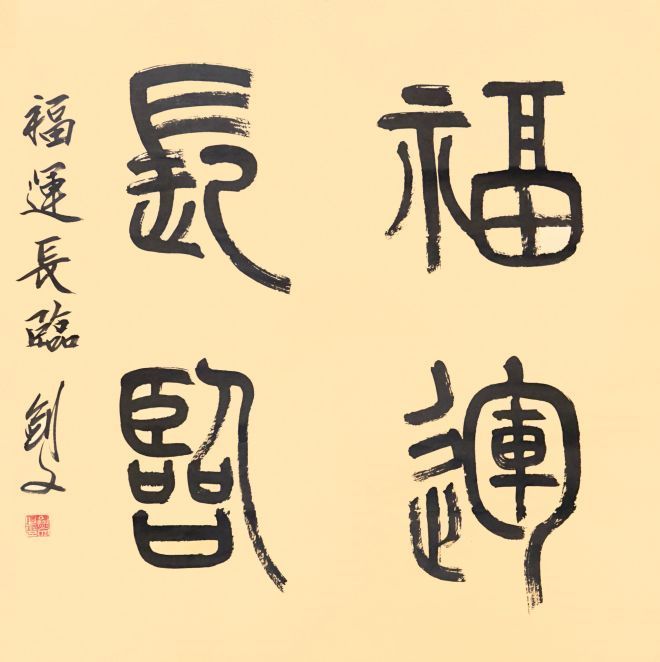 福運
長臨
福運長臨 劍文